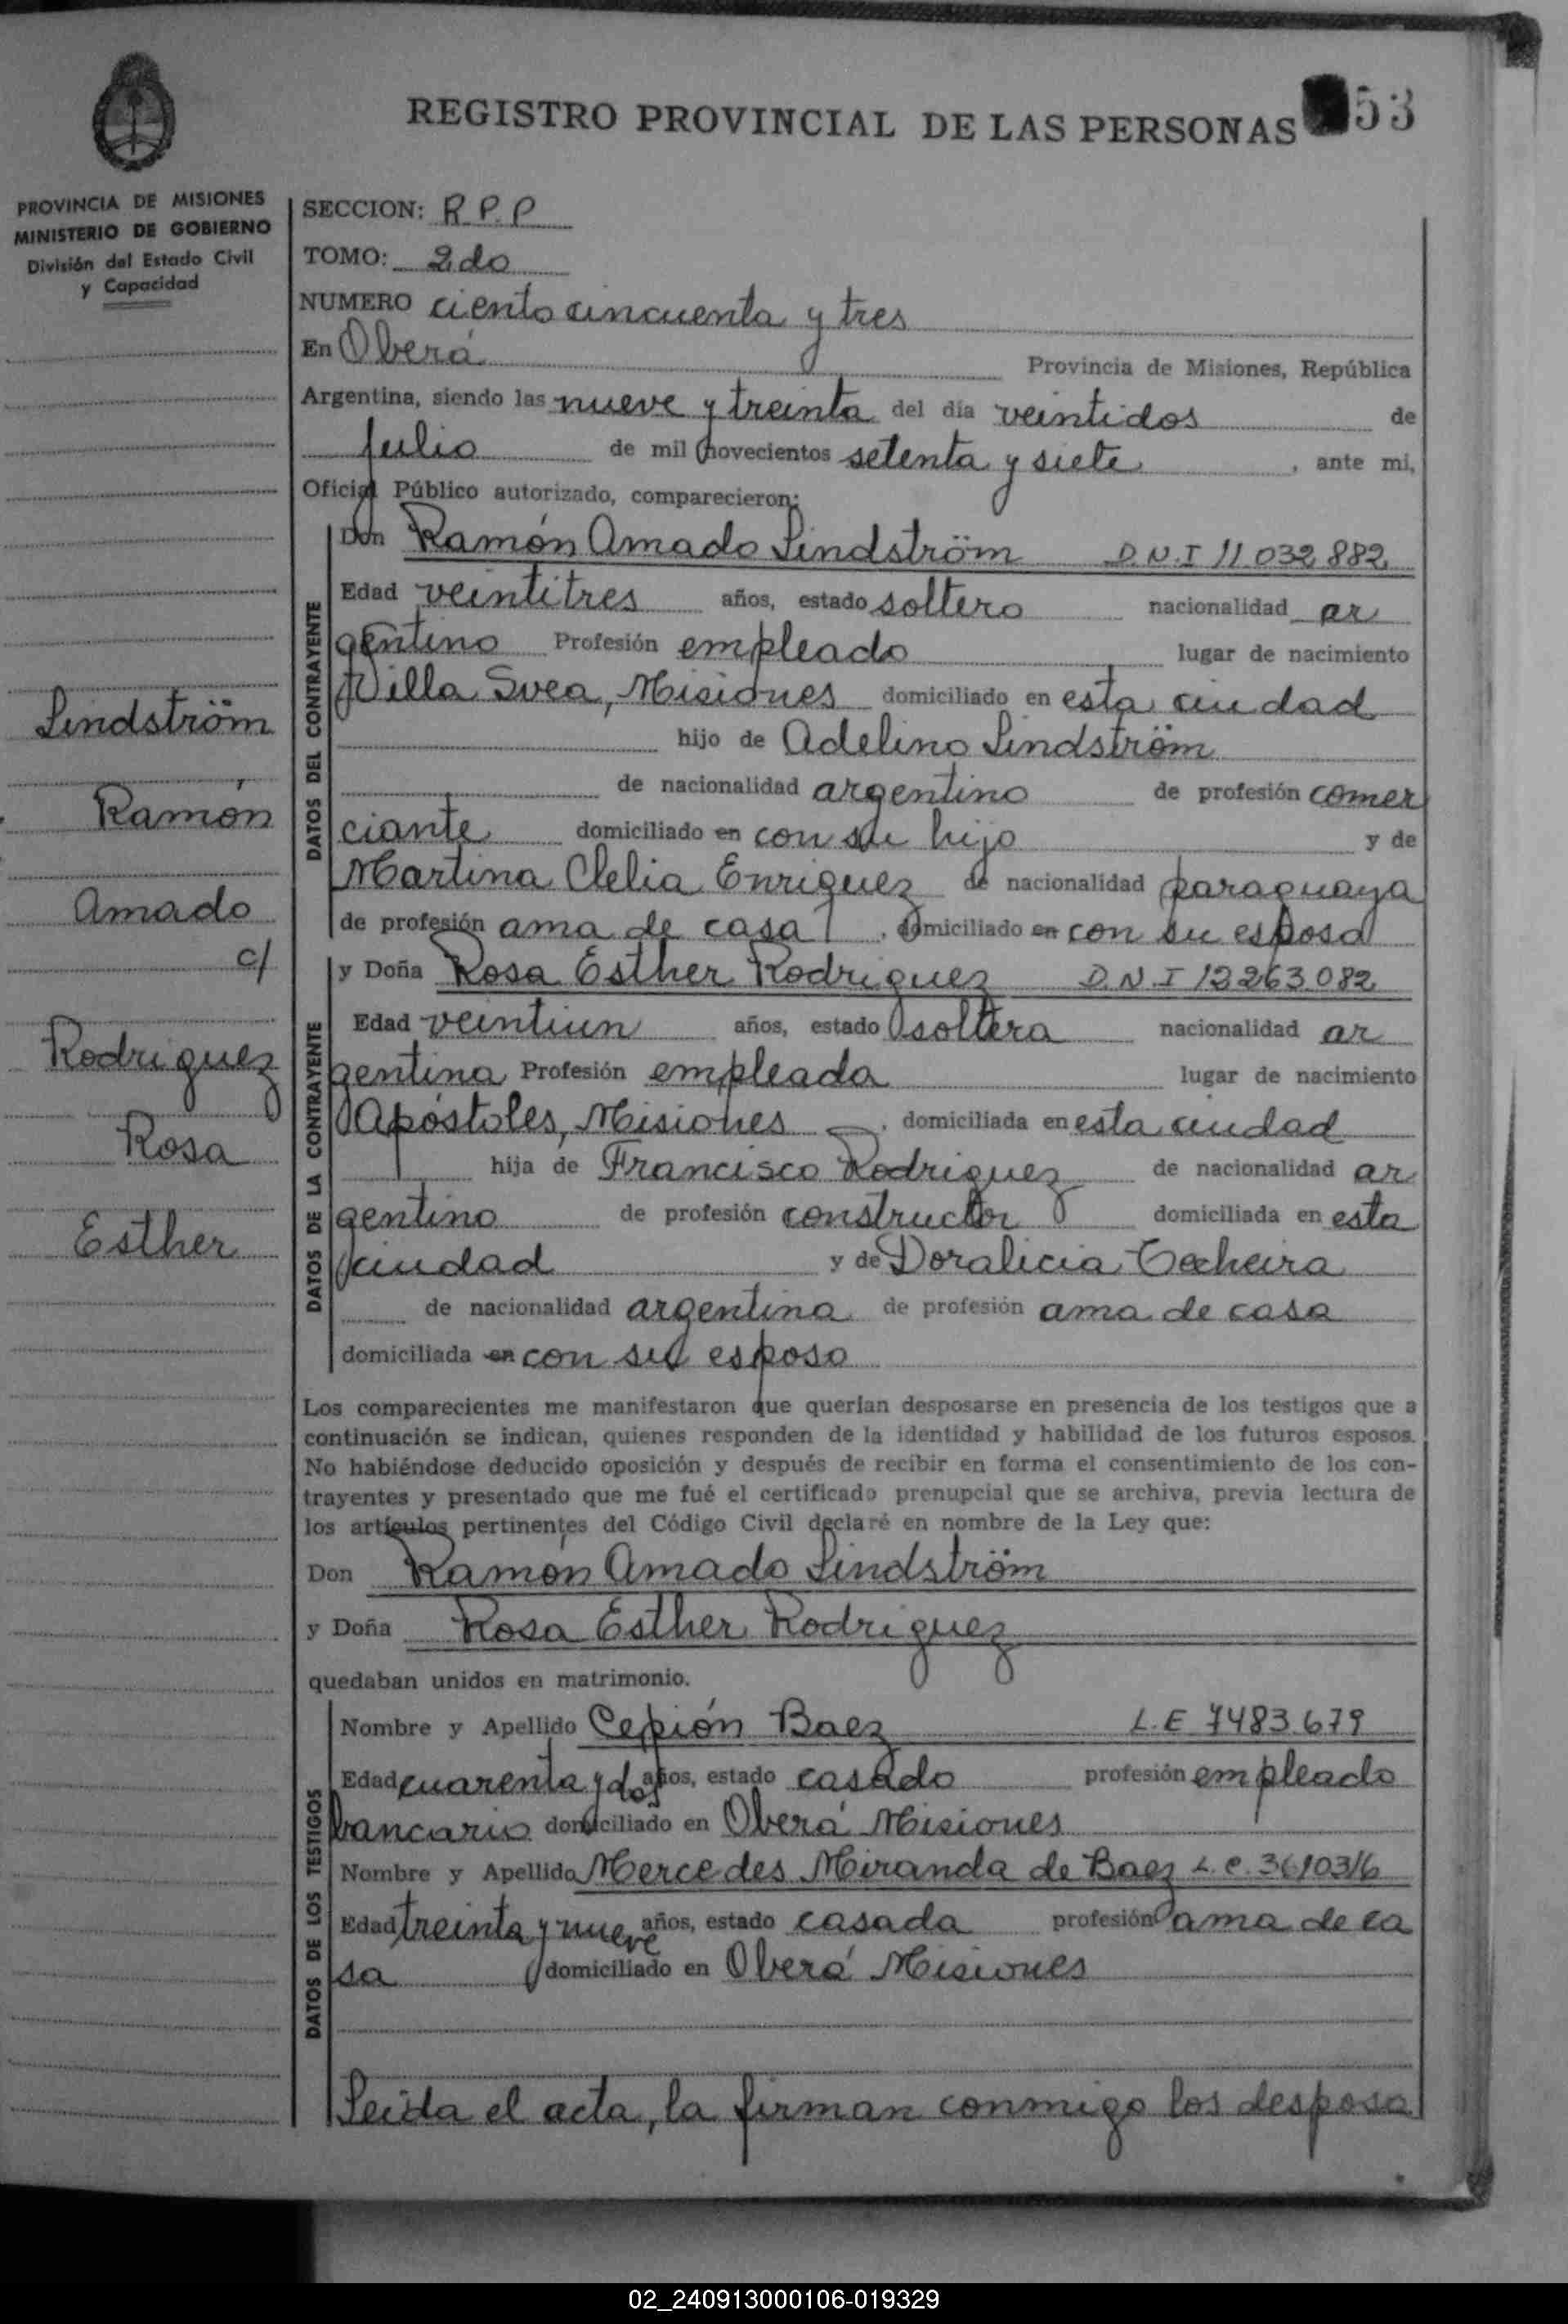 REGISTRO PROVINCIAL DE LAS PERSONAS 53
PROVINCIA DE MISIONES
MINISTERIO DE GOBIERNO
División del Estado Civil
y Capacidad
SECCION: R.P.P
TOMO: 2do
NUMERO ciento cincuenta y tres
En Oberá Provincia de Misiones, República
Argentina, siendo las nueve y treinta del día veintidos de
julio de mil novecientos setenta y siete, ante mi,
Oficial Público autorizado, comparecieron:
DATOS DEL CONTRAYENTE
Don Ramón Amado Lindström D.N.I 11.032.882
Edad veintitres años, estado soltero nacionalidad ar
gentino Profesión empleado lugar de nacimiento
Villa Svea, Misiones domiciliado en esta ciudad
hijo de Adelino Lindström
de nacionalidad argentino de profesión comer
ciante domiciliado en con su hijo y de
Martina Clelia Enriquez de nacionalidad paraguaya
de profesión ama de casa, domiciliado en con su esposo
DATOS DE LA CONTRAYENTE
y Doña Rosa Esther Rodriguez D.N.I 12263.082
Edad veintiun años, estado soltera nacionalidad ar
gentina Profesión empleada lugar de nacimiento
Apóstoles, Misiones, domiciliada en esta ciudad
hija de Francisco Rodriguez de nacionalidad ar
gentino de profesión constructor domiciliada en esta
ciudad y de Doralicia
de nacionalidad argentina de profesión ama de casa
domiciliada en con su esposo
Lindström
Ramón
Amado
c/
Rodriguez
Rosa
Esther
Los comparecientes me manifestaron que querían desposarse en presencia de los testigos que a
continuación se indican, quienes responden de la identidad y habilidad de los futuros esposos.
No habiéndose deducido oposición y después de recibir en forma el consentimiento de los con-
trayentes y presentado que me fué el certificado prenupcial que se archiva, previa lectura de
los artículos pertinentes del Código Civil declaré en nombre de la Ley que:
Don Ramón Amado Lindström
y Doña Rosa Esther Rodriguez
quedaban unidos en matrimonio.
DATOS DE LOS TESTIGOS
Nombre y Apellido Cepión Baez L.E 7483.679
Edad cuarenta y dos años, estado casado profesión empleado
bancario domiciliado en Oberá Misiones
Nombre y Apellido Mercedes Miranda de Baez L.C.
Edad treinta y nueve años, estado casada profesión ama de ca
sa domiciliado en Oberá Misiones
Leida el acta, la firman conmigo los desposa
02_240913000106-019329